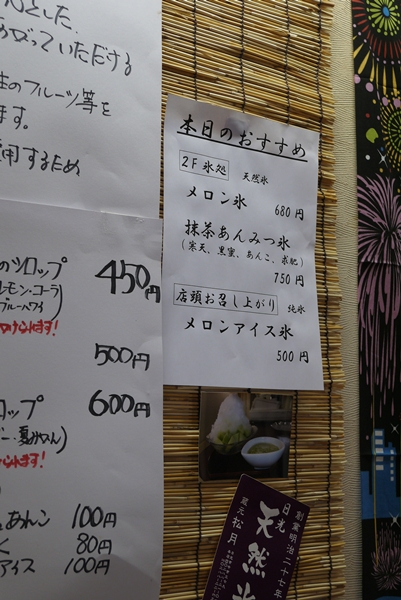 とした
がっていただける
のフルーツ等を
ます。
用するため
のシロップ 450円
レモン・コーラ
ブルーハワイ)
けられます!
500円
ロップ 600円
ー・夏みかん)
られます!
あんこ 100円
く 80円
アイス 100円
本日のおすすめ
2F氷処 天然氷
メロン氷 680円
抹茶あんみつ氷
(寒天、黒蜜、あんこ、求肥)
750円
店頭お召し上がり 純氷
メロンアイス氷
500円
創業明治二十七年
日光
天然氷
蔵元 松月